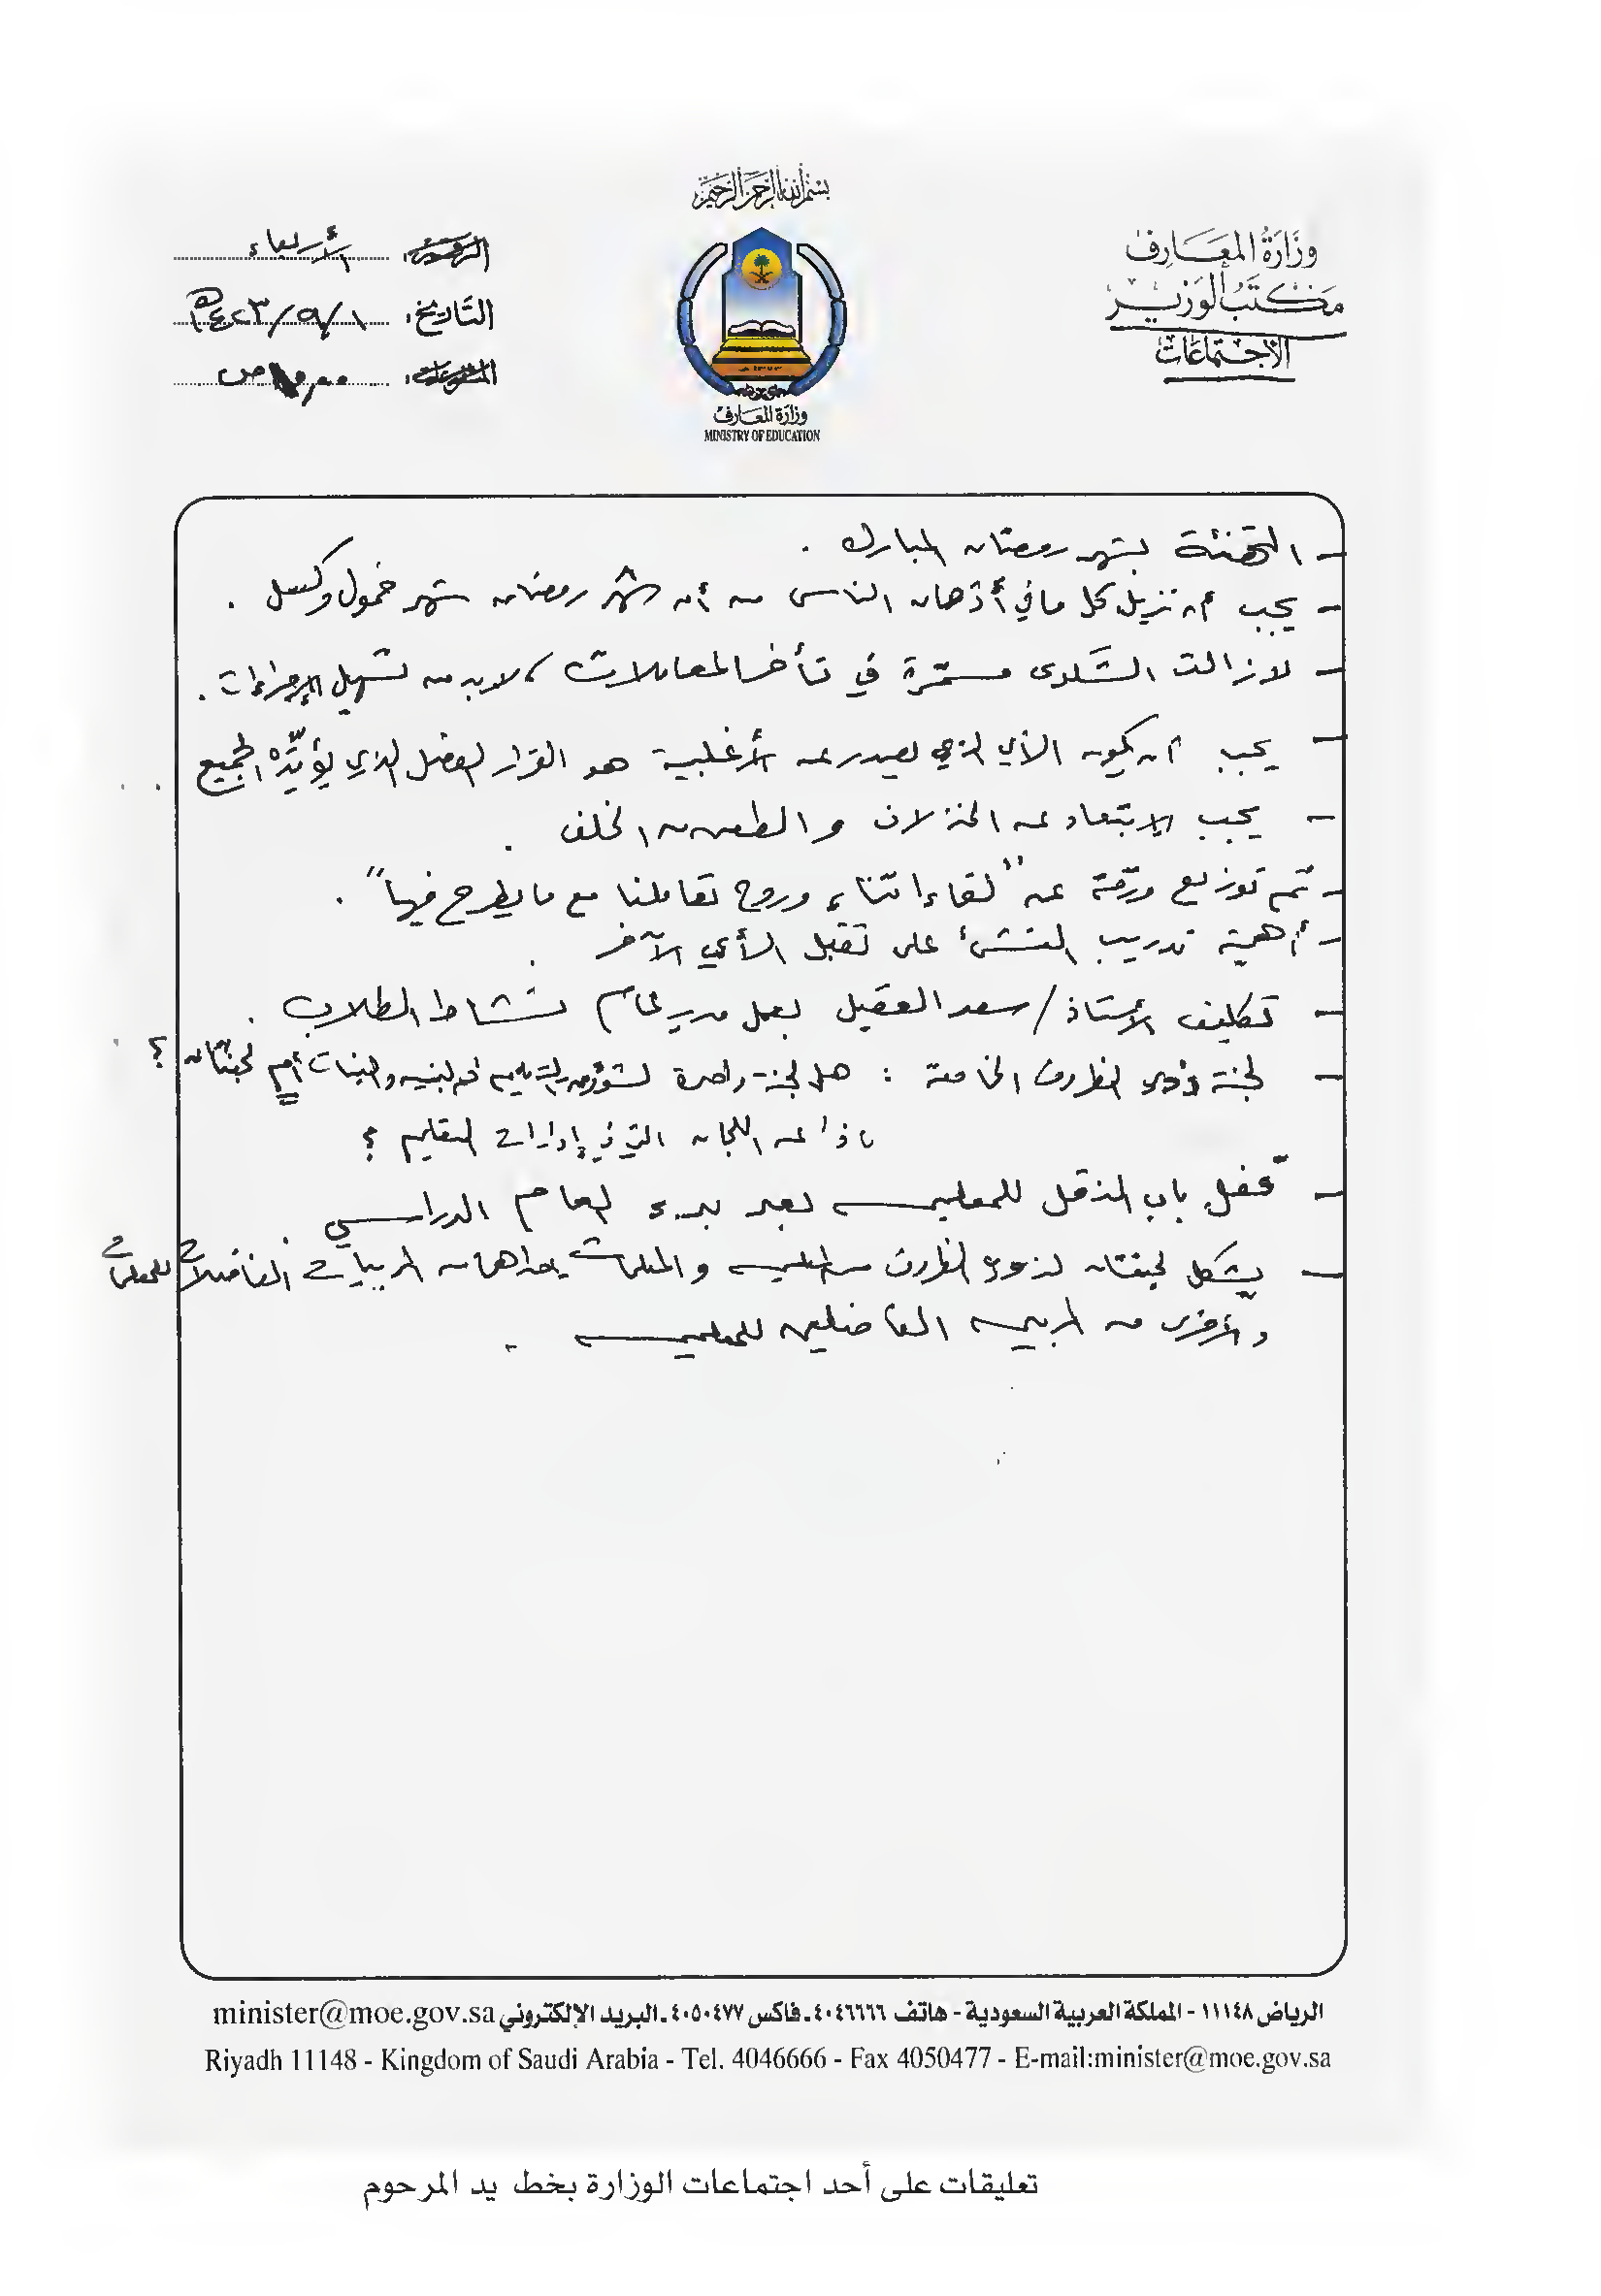 بسم الله الرحمن الرحيم
وزارة المعارف
مكتب الوزير
الاجتماعات
وزارة المعارف
MINISTRY OF EDUCATION
الرقم: الأربعاء
التاريخ: ١/٩/١٤٢٣هـ
المشفوعات:
- التهنئة بشهر رمضان المبارك .
- يجب أن نزيل كل ما في أذهان الناس من أن شهر رمضان شهر خمول وكسل .
- لا زالت الشكوى مستمرة في تأخر المعاملات، لا بد من تسهيل الإجراءات .
- يجب أن يكون الرأي الذي يصدر عن الأغلبية هو القرار المفضل الذي يؤيده الجميع
- يجب الابتعاد عن الخذلان والطعن من الخلف .
- تم توزيع ورقة عن "لقاءاتنا، وروح تعاملنا مع ما يطرح فيها" .
- أهمية تدريب النشئ على تقبل الرأي الآخر .
- تكليف الأستاذ/ سعد العقيل بعمل مدير عام نشاط الطلاب .
- لجنة ذوي الظروف الخاصة : هل لجنة واحدة البنين والبنات أم لجنتان ؟
ماذا عن اللجان التي في إدارات التعليم ؟
- قفل باب النقل للمعلمين بعد بدء العام الدراسي .
- يشكل لجنتان لذوي الظروف من المعلمين والمعلمات إحداهما من المربيات الفاضلات للمعلمات
والأخرى من المربين الفاضلين للمعلمين .
الرياض ١١١٤٨ - المملكة العربية السعودية - هاتف ٤٠٤٦٦٦٦ ـ فاكس ٤٠٥٠٤٧٧ ـ البريد الإلكتروني minister@moe.gov.sa
Riyadh 11148 - Kingdom of Saudi Arabia - Tel. 4046666 - Fax 4050477 - E-mail:minister@moe.gov.sa
تعليقات على أحد اجتماعات الوزارة بخط يد المرحوم